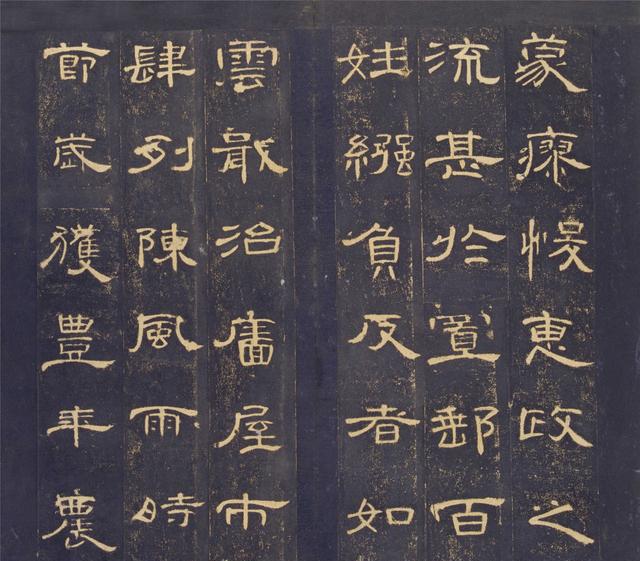 蒙瘳悛惠政之
流甚於置郵百
姓繈負反者如
雲戢治廧屋市
肆列陳風雨時
節歲獲豐年農